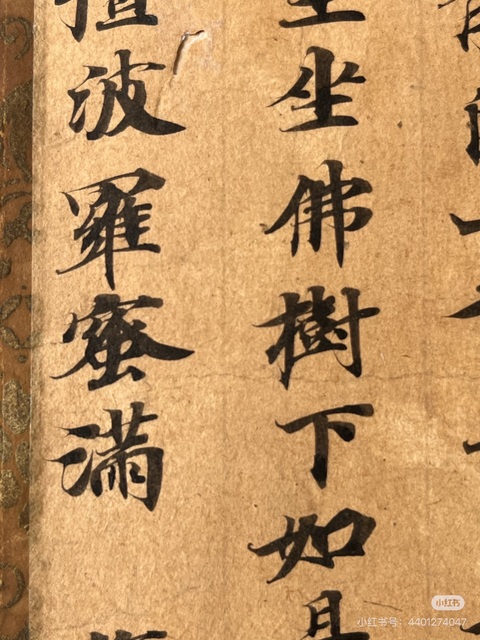 坐佛樹下如
檀波羅蜜滿
小红书
小红书号：4401274047